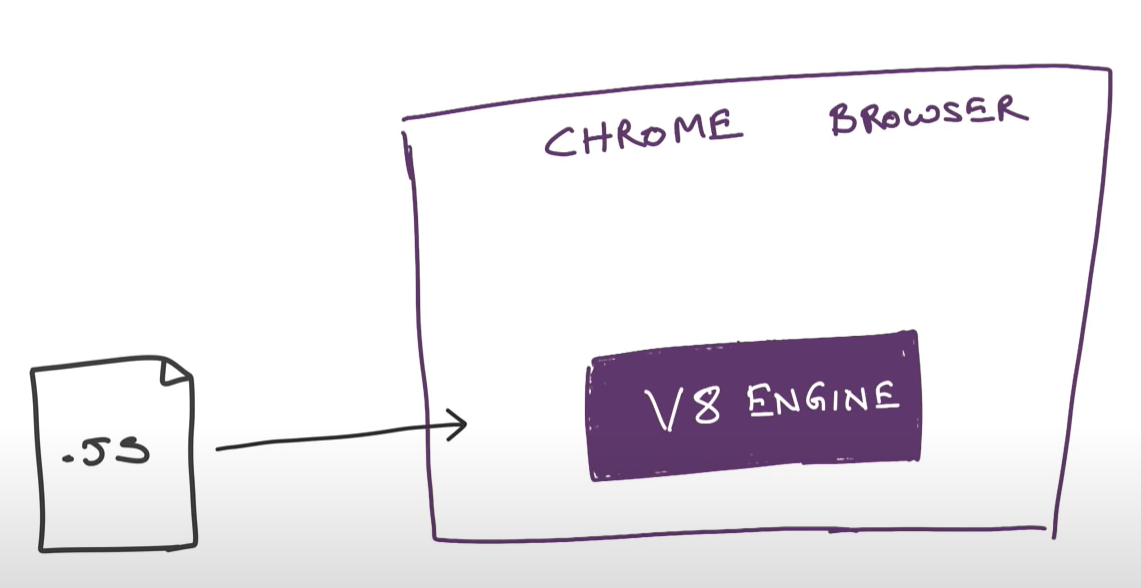 CHROME BROWSER
V8 ENGINE
.JS